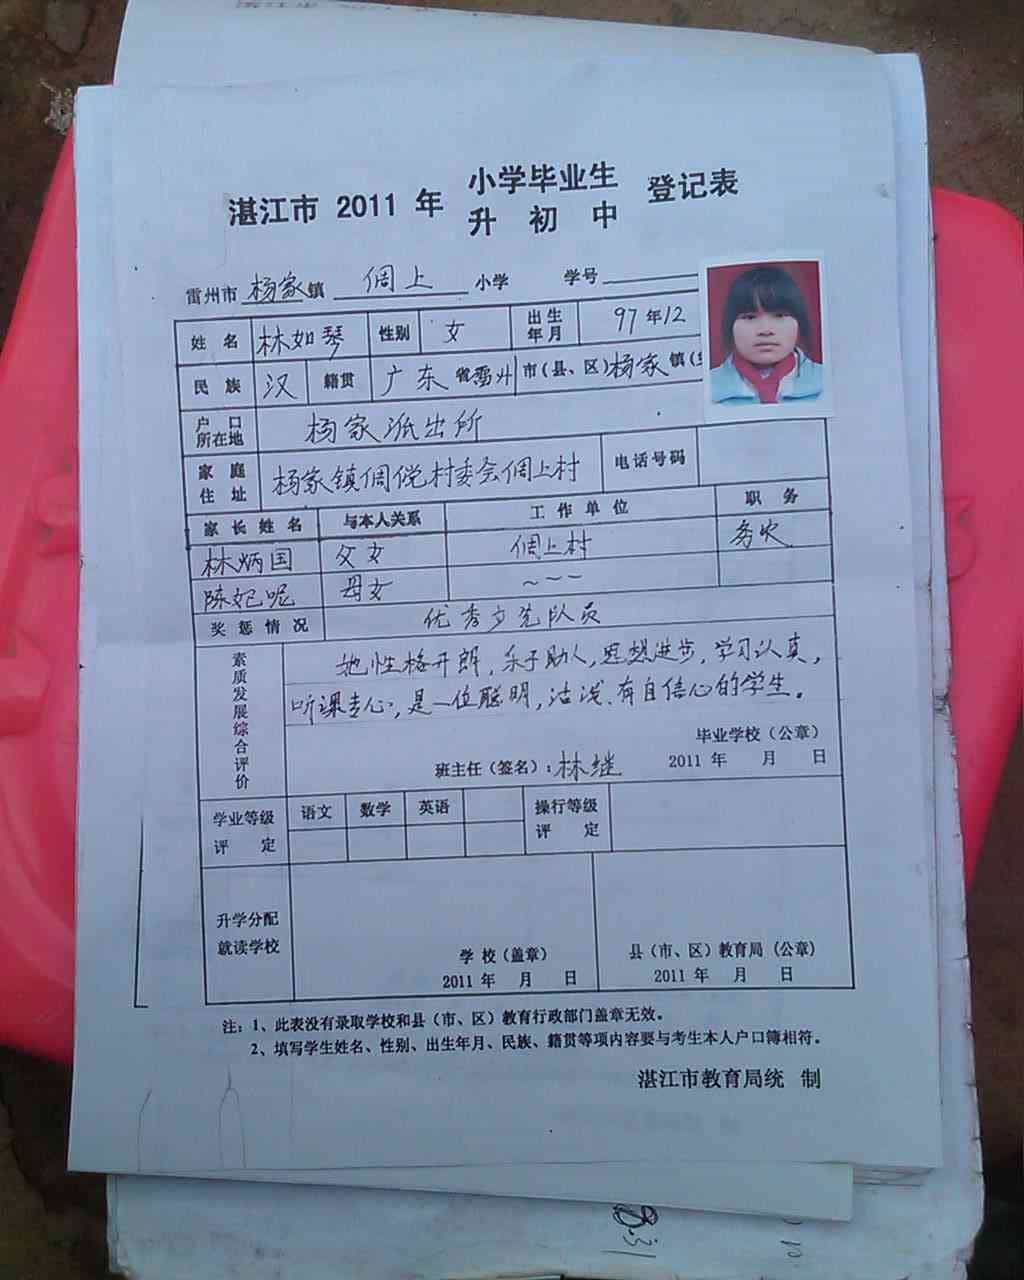 湛江市 2011 年 小学毕业生 登记表
升 初 中
雷州市杨家镇 倜上 小学 学号
姓名 林如琴 性别 女 出生年月 97年12
民族 汉 籍贯 广东省雷州市(县、区)杨家镇(
户口所在地 杨家派出所
家庭住址 杨家镇倜傥村委会倜上村 电话号码
家长姓名 与本人关系 工作单位 职务
林炳国 父女 倜上村 务农
陈妃呢 母女 ~~~
奖惩情况 优秀少先队员
素质发展综合评价
她性格开朗,乐于助人,思想进步,学习认真,
听课专心,是一位聪明,活泼、有自信心的学生。
毕业学校(公章)
班主任(签名):林继 2011年 月 日
学业等级评定 语文 数学 英语 操行等级评定
升学分配就读学校
学校(盖章) 县(市、区)教育局(公章)
2011年 月 日 2011年 月 日
注:1、此表没有录取学校和县(市、区)教育行政部门盖章无效。
2、填写学生姓名、性别、出生年月、民族、籍贯等项内容要与考生本人户口簿相符。
湛江市教育局统 制
8.31